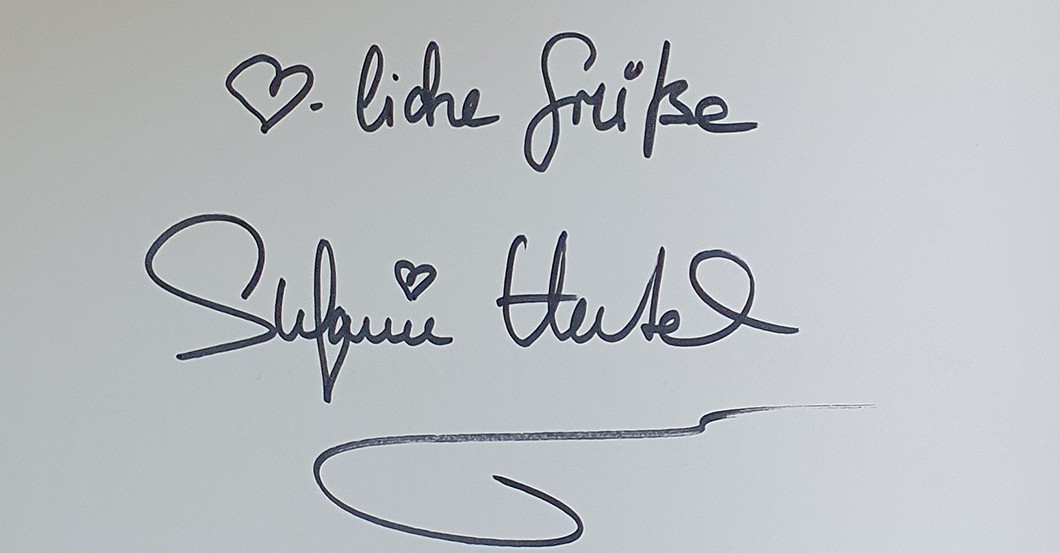 ♡-liche Grüße
Stefanie Hertel